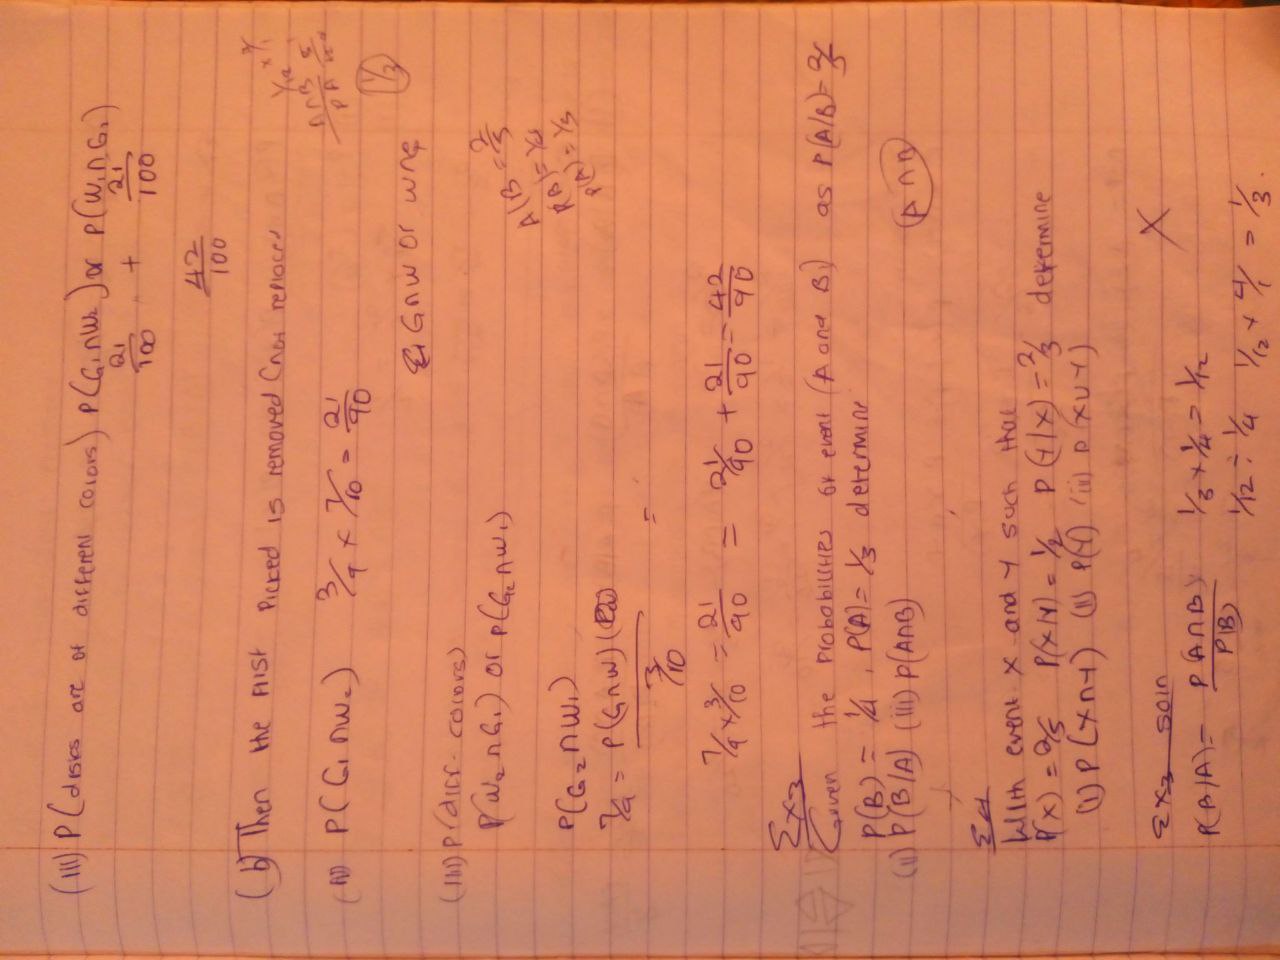 (iii) P(disks are of different colors) P(G₁∩W₂) or P(W₁∩G₂)
21/100 + 21/100
42/100
(b) Then the first picked is removed (not replaced
P(G₁∩W₂) 3/9 × 7/10 = 21/90
A∩B/PA
1/3
G∩W or W∩G
(iii) P(diff. colors)
P(W₂∩G₁) or P(G₂∩W₁)
A/B = 2/5
P(B) = 1/4
P(A) = 1/3
P(G₂∩W₁)
7/9 = P(G∩W)/(3/10) =
7/9 × 3/10 = 21/90 = 21/90 + 21/90 = 42/90
Ex3
Given the probabilities of event (A and B) as P(A/B) = 2/5
P(B) = 1/4, P(A) = 1/3 determine
(i) P(B/A) (iii) P(A∩B)
A∩B
E4
With event X and Y such that
P(X) = 2/5 P(X/Y) = 1/2 P(Y/X) = 2/3 determine
(i) P(X∩Y) (ii) P(Y) (iii) P(X∪Y)
Ex3 soln X
P(B/A) = P(A∩B)/P(B) 1/3 × 1/4 = 1/12
1/12 ÷ 1/4 1/12 × 4/1 = 1/3.